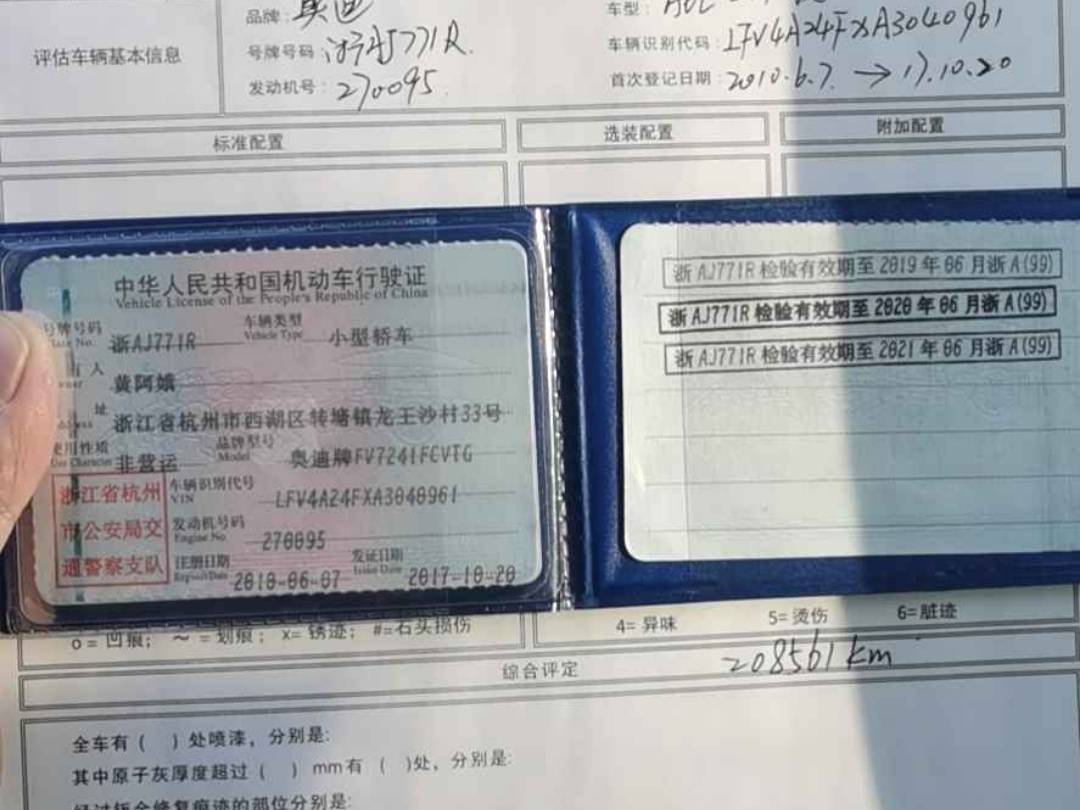 评估车辆基本信息
品牌: 奥迪
车型:
号牌号码: 浙AJ771R.
车辆识别代码: LFV4A24FXA3040961
发动机号: 270095
首次登记日期: 2010.6.7. → 17.10.20
标准配置
选装配置
附加配置
中华人民共和国机动车行驶证
Vehicle License of the People's Republic of China
号牌号码 浙AJ771R 车辆类型 小型轿车
Plate No. Vehicle Type
有人 黄阿娥
址 浙江省杭州市西湖区转塘镇龙王沙村33号
使用性质 非营运 品牌型号 奥迪牌FV7241FCVTG
Use Character Model
浙江省杭州
市公安局交
通警察支队
车辆识别代号 LFV4A24FXA3040961
VIN
发动机号码 270095
Engine No.
注册日期 2010-06-07 发证日期 2017-10-20
Register Date Issue Date
浙AJ771R检验有效期至2019年06月浙A(99)
浙AJ771R检验有效期至2020年06月浙A(99)
浙AJ771R检验有效期至2021年06月浙A(99)
o = 凹痕; ～ = 划痕; x= 锈迹; #=石头损伤
4= 异味 5= 烫伤 6= 脏迹
综合评定
208561 km
全车有 ( ) 处喷漆，分别是:
其中原子灰厚度超过 ( ) mm有 ( )处，分别是:
经过钣金修复痕迹的部位分别是: